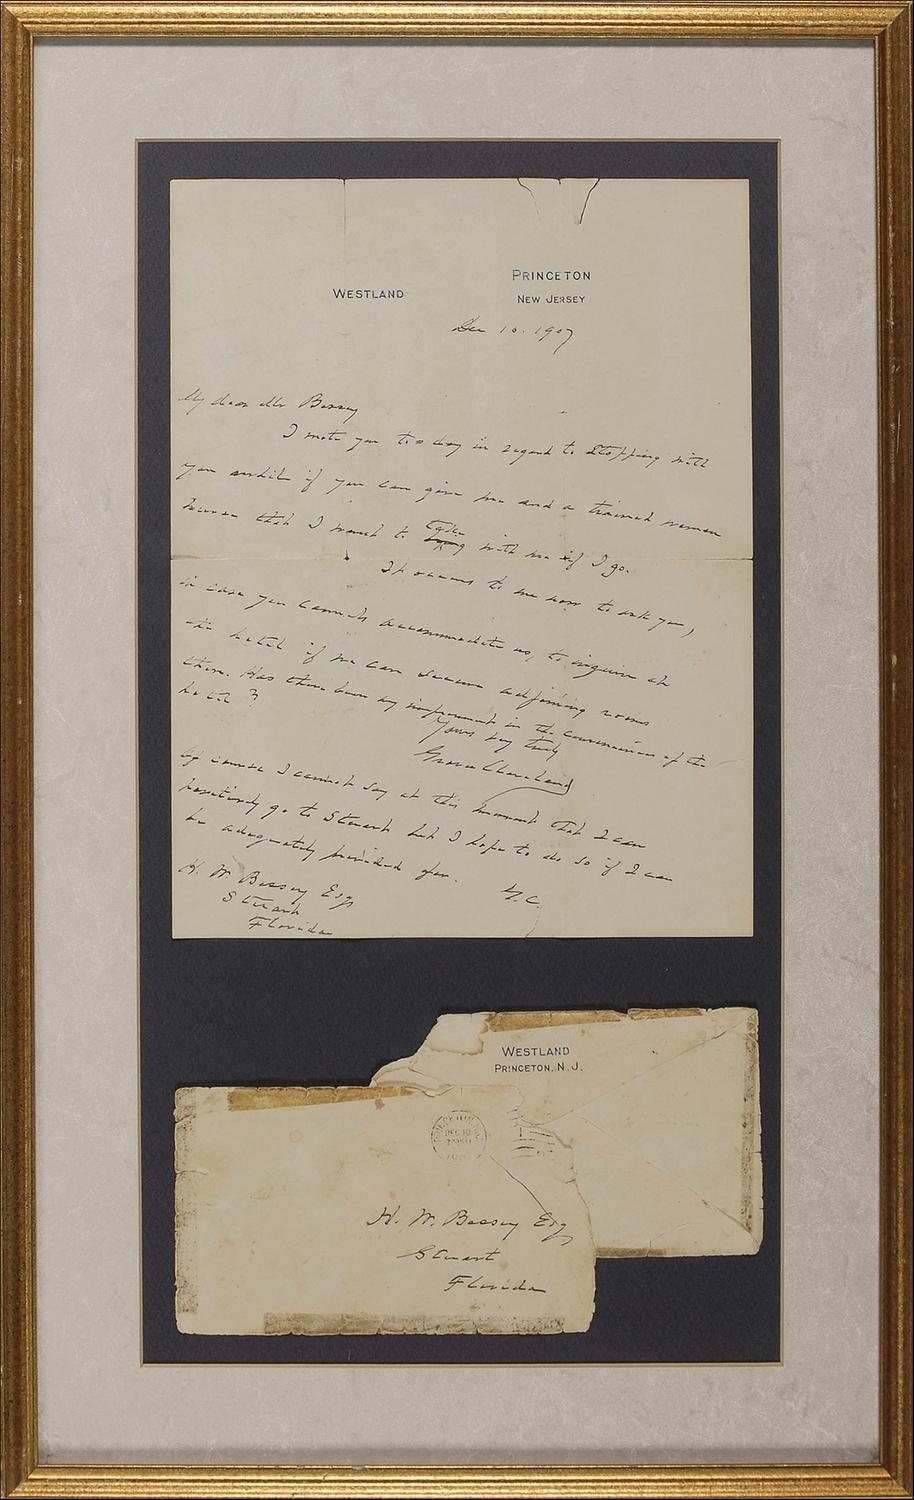 WESTLAND
PRINCETON
NEW JERSEY
Dec 10. 1907
My dear Mr Bessey
I wrote you to-day in regard to stopping with
you awhile if you can give me and a trained woman
nurse that I want to take with me if I go.
It occurs to me now to ask you,
in case you cannot accommodate us, to inquire at
the hotel if we can secure adjoining rooms
there. Has there been any improvement in the conveniences of the
hotel?
Yours very truly
Grover Cleveland
Of course I cannot say at this moment that I can
positively go to Stuart but I hope to do so if I can
be adequately provided for.
G.C.
H. W. Bessey Esq
Stuart
Florida
WESTLAND
PRINCETON, N. J.
DEC 10
H. W. Bessey Esq
Stuart
Florida